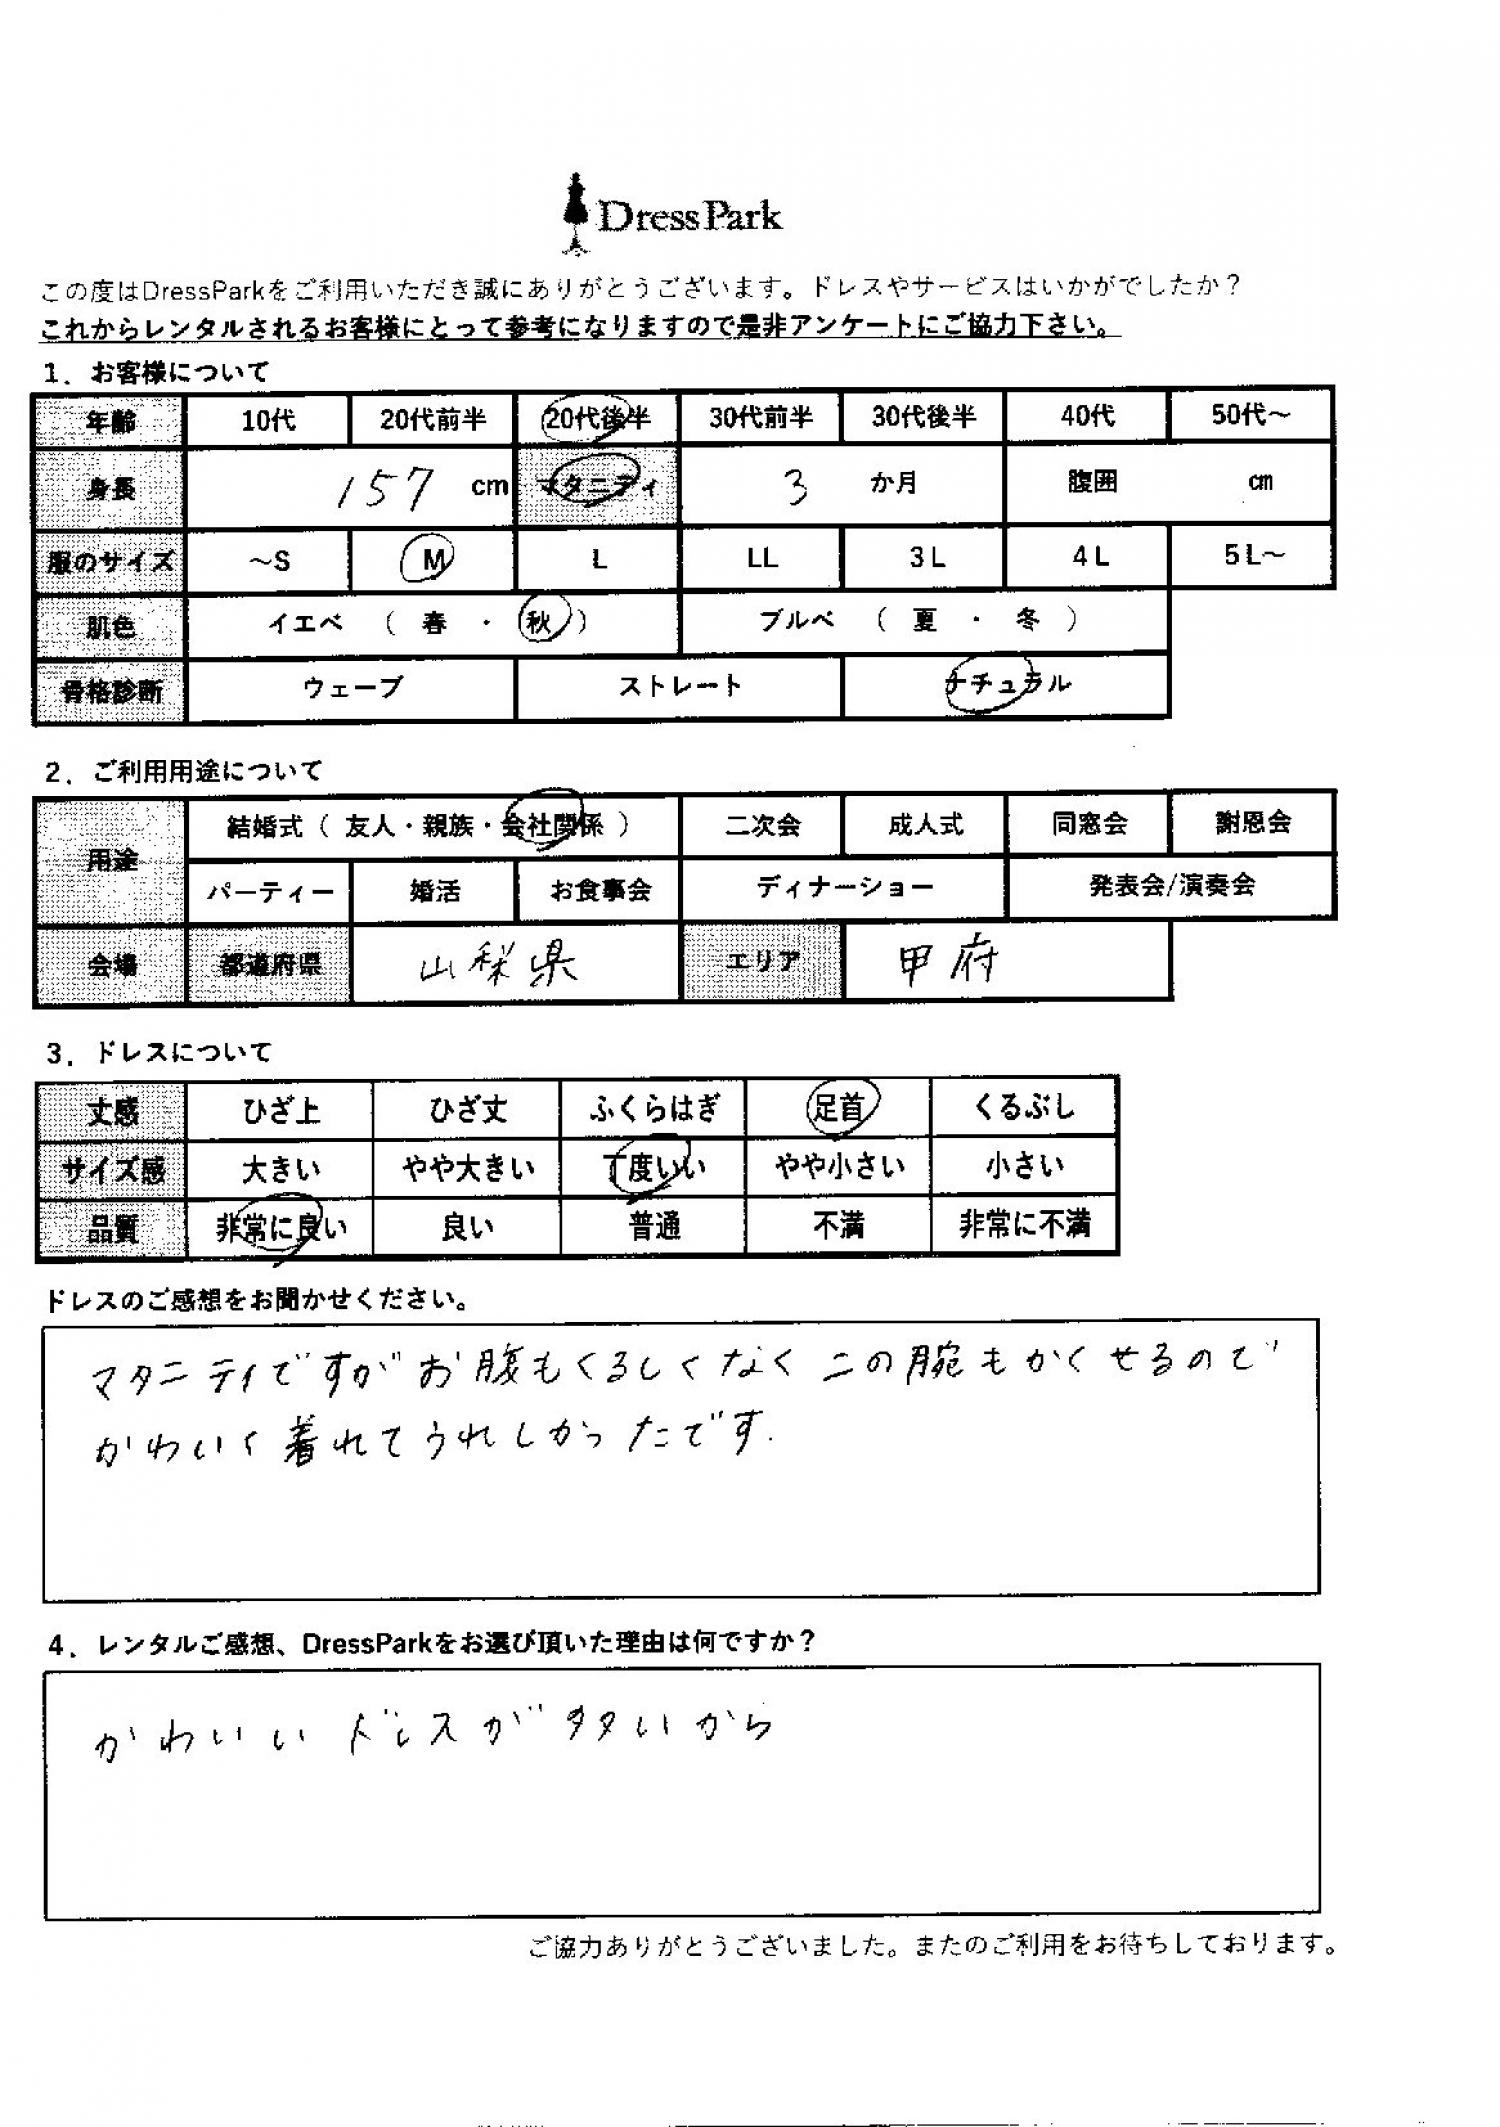 DressPark
この度はDressParkをご利用いただき誠にありがとうございます。ドレスやサービスはいかがでしたか？
これからレンタルされるお客様にとって参考になりますので是非アンケートにご協力下さい。
1．お客様について
年齢 10代 20代前半 20代後半 30代前半 30代後半 40代 50代～
身長 157 cm マタニティ 3 か月 腹囲 cm
服のサイズ ～S M L LL 3L 4L 5L～
肌色 イエベ （ 春 ・ 秋 ） ブルベ （ 夏 ・ 冬 ）
骨格診断 ウェーブ ストレート ナチュラル
2．ご利用用途について
用途 結婚式（ 友人・親族・会社関係 ） 二次会 成人式 同窓会 謝恩会
パーティー 婚活 お食事会 ディナーショー 発表会/演奏会
会場 都道府県 山梨県 エリア 甲府
3．ドレスについて
丈感 ひざ上 ひざ丈 ふくらはぎ 足首 くるぶし
サイズ感 大きい やや大きい 丁度いい やや小さい 小さい
品質 非常に良い 良い 普通 不満 非常に不満
ドレスのご感想をお聞かせください。
マタニティですがお腹もくるしくなく二の腕もかくせるので
かわいく着れてうれしかったです.
4．レンタルご感想、DressParkをお選び頂いた理由は何ですか？
かわいいドレスが多いから
ご協力ありがとうございました。またのご利用をお待ちしております。